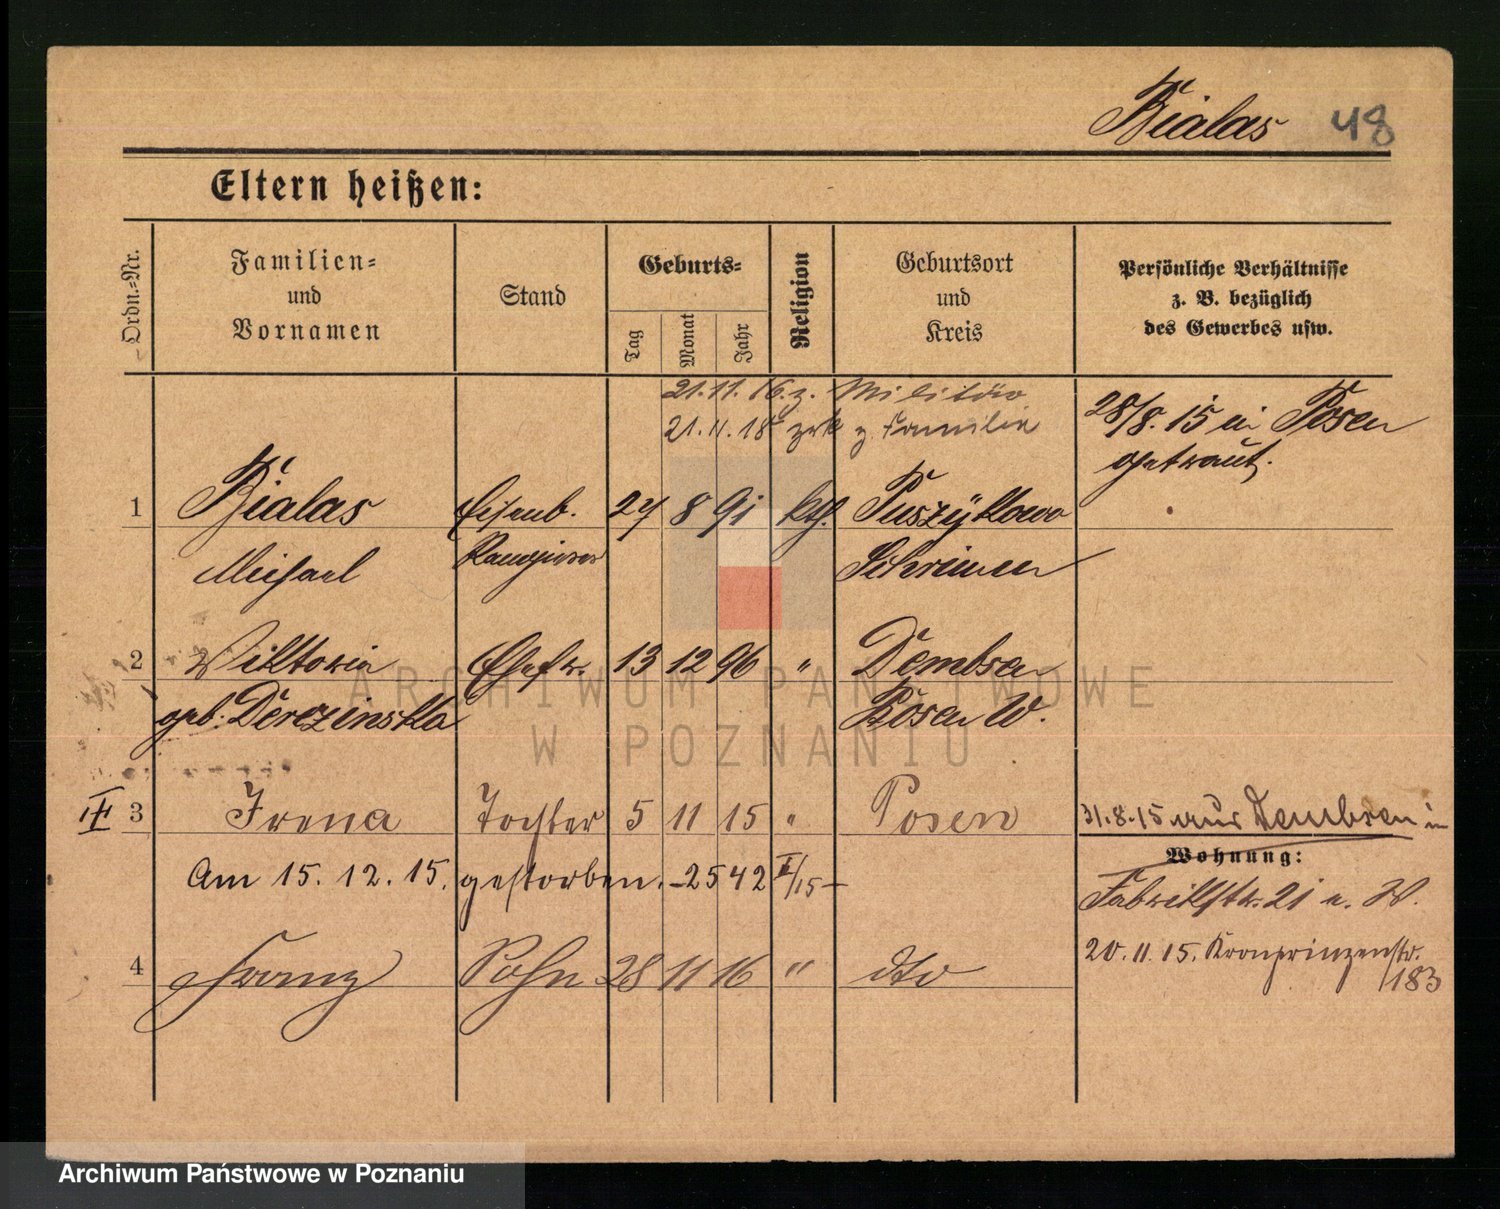 Bialas 48
Eltern heißen:
Ordn.-Nr.
Familien- und Vornamen
Stand
Geburts-
Tag
Monat
Jahr
Religion
Geburtsort und Kreis
Persönliche Verhältnisse
z. B. bezüglich
des Gewerbes usw.
21.11.16 z. Militär
21.11.18 zrk z. Familie
28/8.15 in Posen
getraut.
1 Bialas Eisenb. 27 8 91 kth. Puszÿkowo
Michael Schrimm
2 Viktoria Ehefr. 13 12 96 " Dembsen
geb. Derezinska Posen W.
III 3 Irena Tochter 5 11 15 " Posen
31.8.15 aus Dembsen in
Am 15.12.15. gestorben. -2542 II/15-
Wohnung:
Fabrikstr. 21 b. W.
4 Franz Sohn 28 11 16 " dto
20.11.15. Kronprinzenstr.
/183
ARCHIWUM PAŃSTWOWE
W POZNANIU
Archiwum Państwowe w Poznaniu